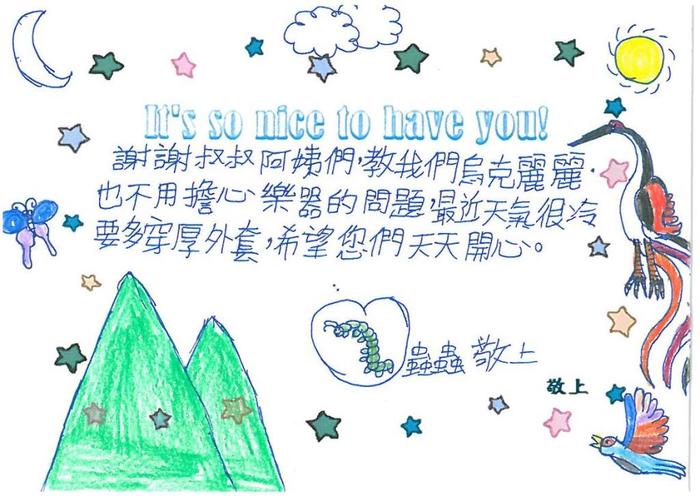 It's so nice to have you!
謝謝叔叔阿姨們,教我們烏克麗麗.
也不用擔心樂器的問題,最近天氣很冷
要多穿厚外套,希望您們天天開心。
蟲蟲敬上
敬上